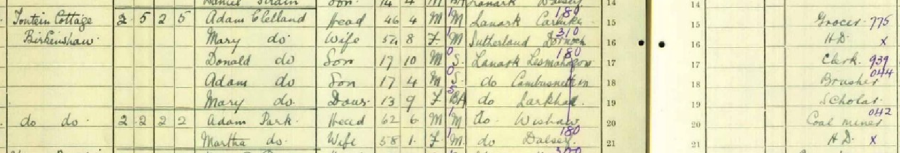 14
Fontein Cottage 2 5 2 5 Adam Clelland Head 46 4 M M Lanark 180 15 Grocer 775
Birkenshaw Mary do. Wife 52 8 F M Sutherland Dornoch 310 16 H.D. x
Donald do Son 17 10 M S. Lanark Lesmahagow 180 17 Clerk 939
Adam do Son 17 4 M S. do Cambusnethan 18 044
Mary do Daur 13 9 F do Larkhall 19 Scholar
do do. 2 2 2 2 Adam Park. Head 62 6 M M do Wishaw 20 Coal miner 042
Martha do. Wife 58 1 F M. do Dalserf 180 21 H.D. x